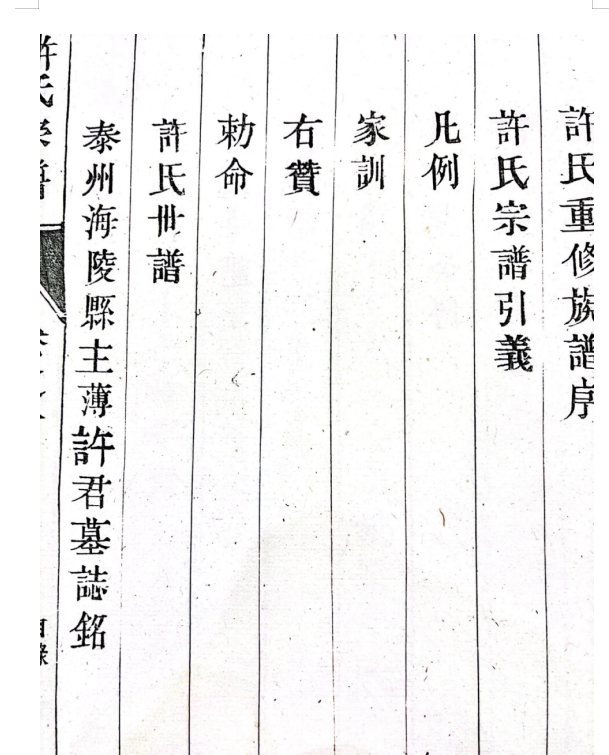 許氏重修族譜序
許氏宗譜引義
凡例
家訓
右贊
勅命
許氏世譜
泰州海陵縣主薄許君墓誌銘
許氏宗譜
目錄